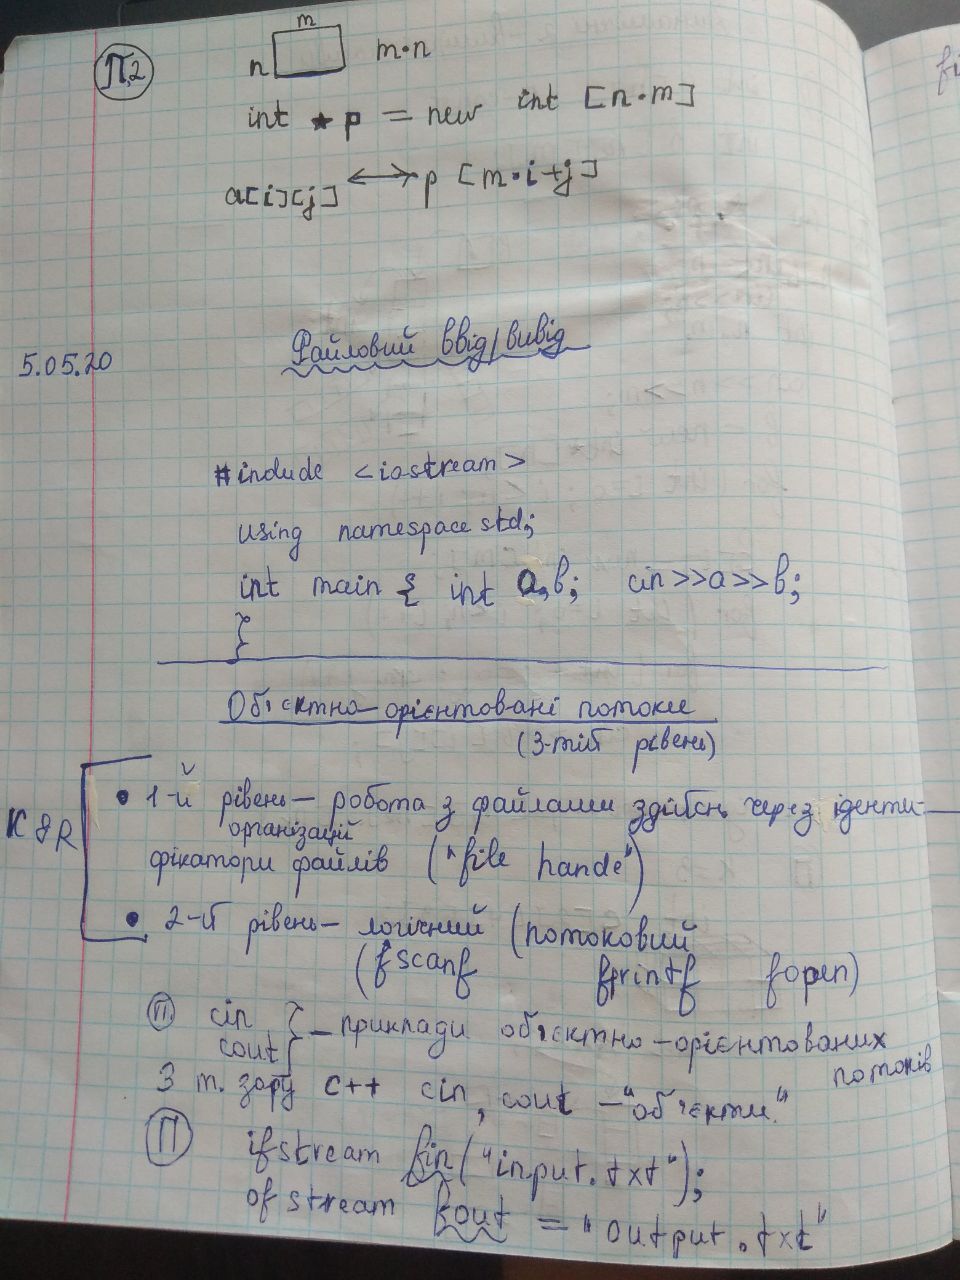 П2
m
n m·n
int * p = new int [n·m]
a[i][j] ⟷ p [m·i+j]
5.05.20
Файловий ввід/вивід
#include <iostream>
using namespace std;
int main { int a,b; cin>>a>>b;
}
Об'єктно-орієнтовані потоки
(3-тій рівень)
K&R
• 1-й рівень— робота з файлами здійсн. через іденти-
організації
фікатори файлів ("file hande")
• 2-й рівень— логічний (потоковий
(fscanf fprintf fopen)
П cin
cout } —приклади об'єктно-орієнтованих
потоків
З т. зору C++ cin, cout —"об'єкти"
П ifstream fin("input.txt");
ofstream fout = "output.txt"